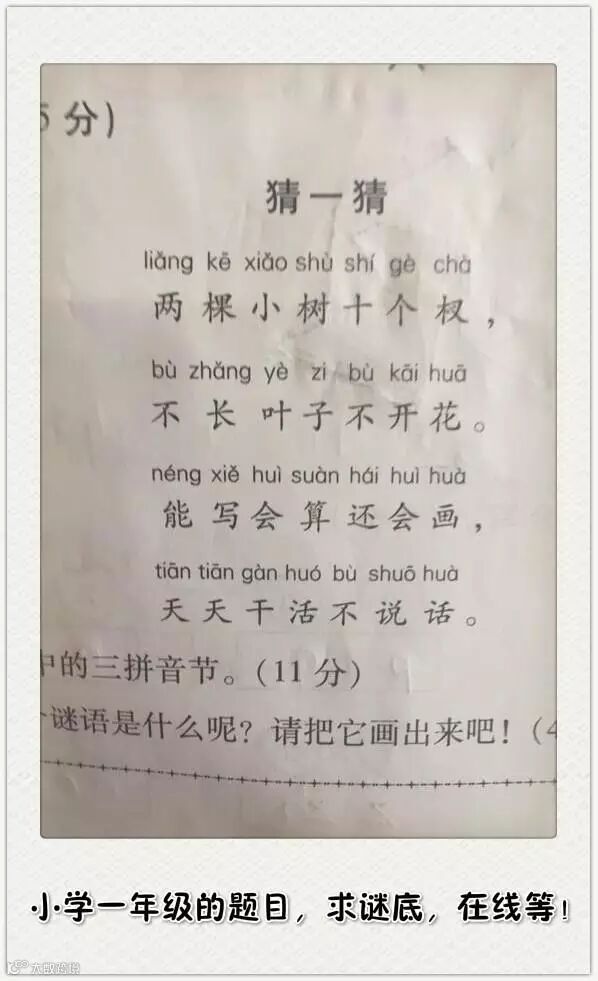 5 分)
猜一猜
liǎng kē xiǎo shù shí gè chà
两棵小树十个杈，
bù zhǎng yè zi bù kāi huā
不长叶子不开花。
néng xiě huì suàn hái huì huà
能写会算还会画，
tiān tiān gàn huó bù shuō huà
天天干活不说话。
中的三拼音节。(11 分)
谜语是什么呢？请把它画出来吧！(4
小学一年级的题目，求谜底，在线等！